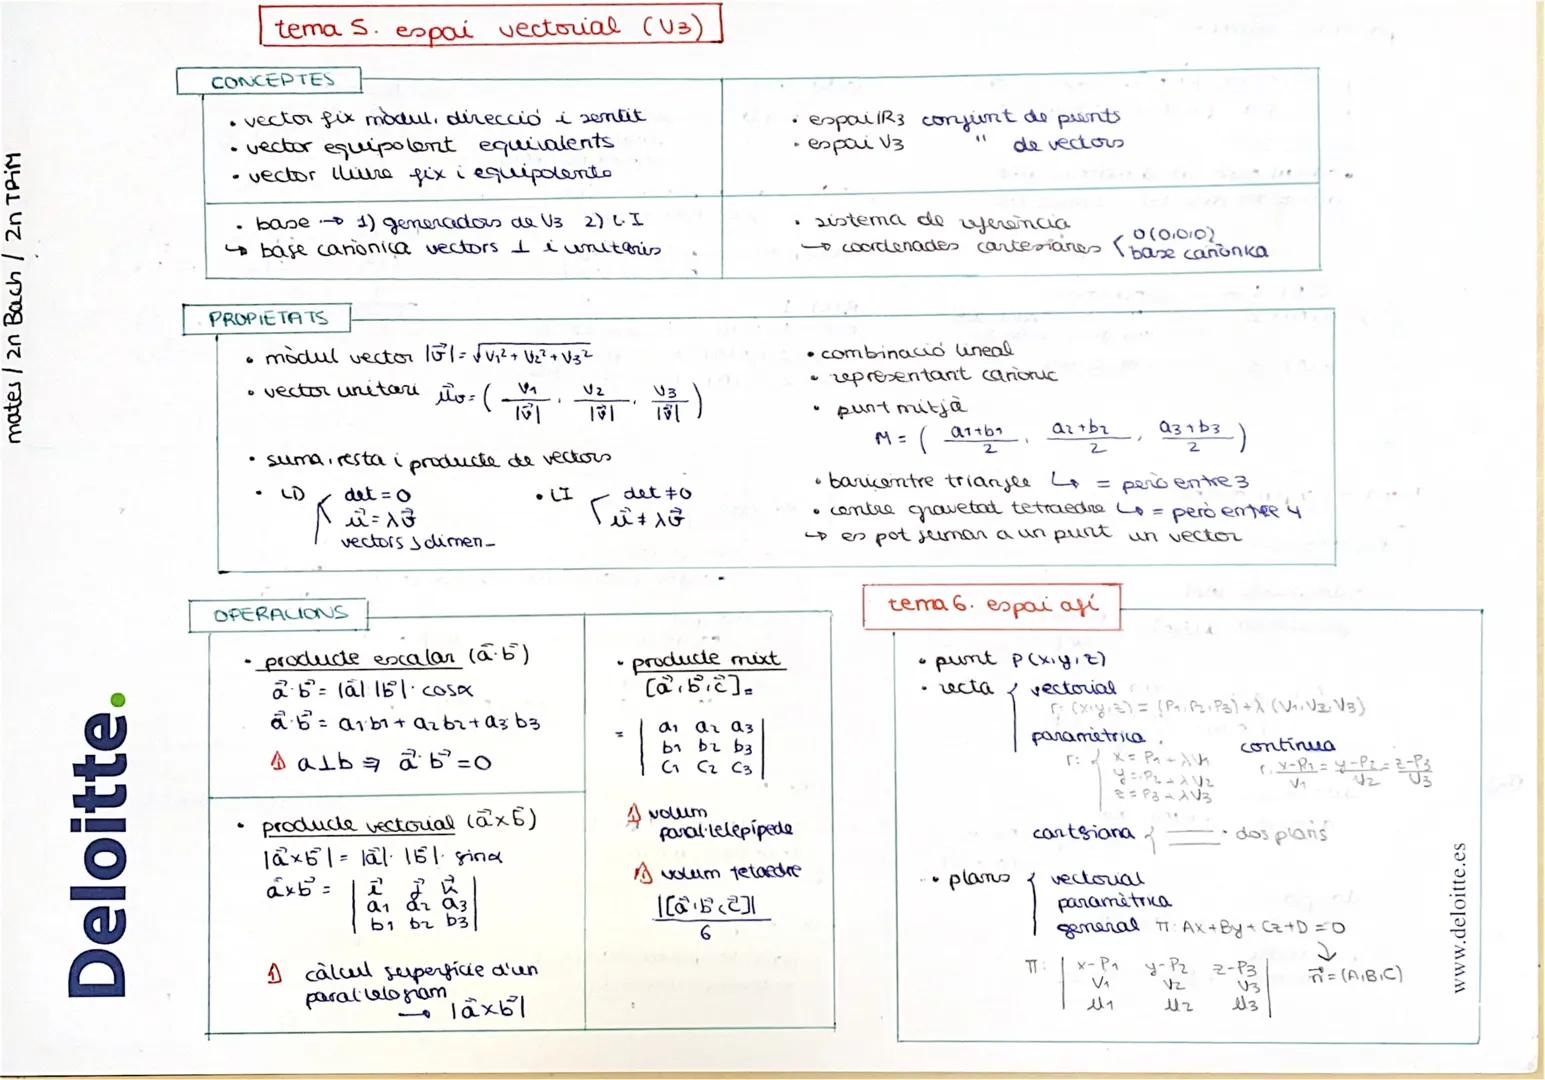 mates / 2n Bach / 2n TRIM
tema 5. espai vectorial (V3)
CONCEPTES
• vector fix mòdul, direcció i sentit
• vector equipolent equivalents
• vector lliure fix i equipolents
• espai R3 conjunt de punts
• espai V3 " de vectors
• base → 1) generadors de V3 2) L.I
↳ base canònica vectors ⊥ i unitaris
• sistema de referència
→ coordenades cartesianes { O(0,0,0)
base canònica
PROPIETATS
• mòdul vector |v⃗| = √v₁² + v₂² + v₃²
• vector unitari u⃗v = ( v₁/|v⃗| , v₂/|v⃗| , v₃/|v⃗| )
• suma, resta i producte de vectors
• LD { det = 0
u⃗ = λv⃗
vectors > dimen-
• LI { det ≠ 0
u⃗ ≠ λv⃗
• combinació lineal
• representant canònic
• punt mitjà
M = ( a1+b1/2 , a2+b2/2 , a3+b3/2 )
• baricentre triangle ↳ = però entre 3
• centre gravetat tetraedre ↳ = però entre 4
↳ es pot sumar a un punt un vector
OPERACIONS
• producte escalar (a⃗·b⃗)
a⃗·b⃗ = |a⃗|·|b⃗|·cosα
a⃗·b⃗ = a1·b1 + a2·b2 + a3·b3
⚠ a⊥b ⇒ a⃗·b⃗ = 0
• producte vectorial (a⃗×b⃗)
|a⃗×b⃗| = |a⃗|·|b⃗|·sinα
a⃗×b⃗ = | i⃗ j⃗ k⃗ |
| a1 a2 a3 |
| b1 b2 b3 |
⚠ càlcul superfície d'un
paral·lelogram
→ |a⃗×b⃗|
• producte mixt
[a⃗,b⃗,c⃗] =
= | a1 a2 a3 |
| b1 b2 b3 |
| c1 c2 c3 |
⚠ volum
paral·lelepípede
⚠ volum tetaedre
|[a⃗,b⃗,c⃗]|
6
tema 6. espai afí
• punt P(x,y,z)
• recta { vectorial
r: (x,y,z) = (P1,P2,P3) + λ (V1,V2,V3)
paramètrica
r: { x = P1 + λV1
y = P2 + λV2
z = P3 + λV3
contínua
r: x-P1/V1 = y-P2/V2 = z-P3/V3
cartsiana { ___ · dos plans
• plans { vectorial
paramètrica
general π: Ax + By + Cz + D = 0
↓
n⃗ = (A,B,C)
π: | x-P1 y-P2 z-P3 |
| V1 V2 V3 |
| u1 u2 u3 |
Deloitte.
www.deloitte.es